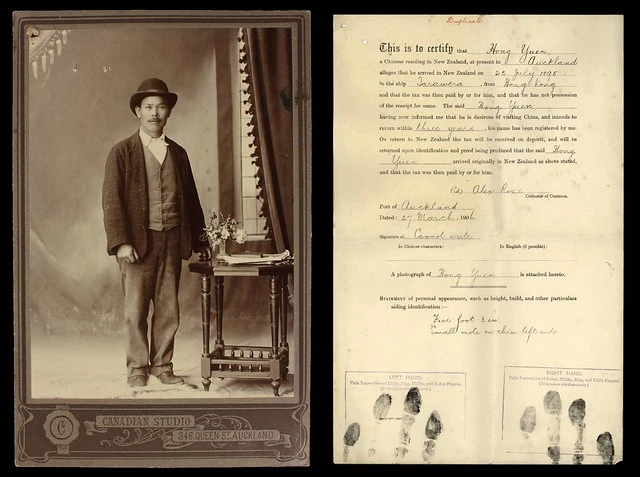 CANADIAN STUDIO
346, QUEEN ST. AUCKLAND
Duplicate
This is to certify that Hong Yuen
a Chinese residing in New Zealand, at present in Auckland
alleges that he arrived in New Zealand on 22 July 1896
in the ship Tarawera, from Hong Kong
and that the tax was then paid by or for him, and that he has not possession
of the receipt for same. The said Hong Yuen
having now informed me that he is desirous of visiting China, and intends to
return within three years, his name has been registered by me.
On return to New Zealand the tax will be received on deposit, and will be
returned upon identification and proof being produced that the said Hong
Yuen arrived originally in New Zealand as above stated,
and that the tax was then paid by or for him.
Alex Rose
Collector of Customs.
Port of Auckland
Dated: 27 March, 1906
Signature of Cannot write
In Chinese characters: In English (if possible):
A photograph of Hong Yuen is attached hereto.
STATEMENT of personal appearance, such as height, build, and other particulars
aiding identification:—
Five foot 3 in
Small mole on chin left side
LEFT HAND.
Plain Impressions of Index, Middle, Ring, and Little Fingers
RIGHT HAND.
Plain Impressions of Index, Middle, Ring, and Little Fingers